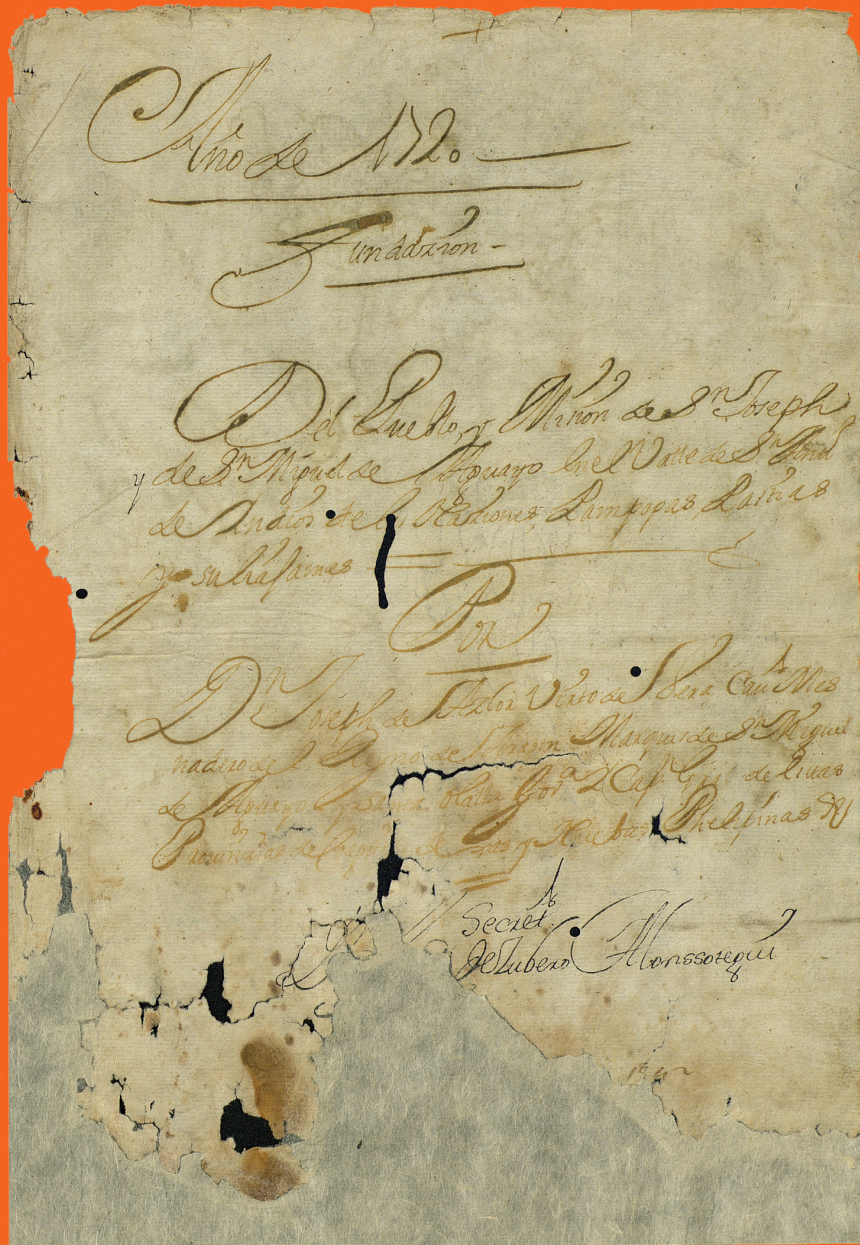 Año de 1720
Fundazion
Del Pueblo, y Mision de Sn Joseph
y de Sn Miguel de Aguayo en el Valle de Sn
de Indios de las Naciones, Pampopas, Pastias
y sulujames
Por
Dn Joseph de Azlor Virto de Vera Cavo Mes
nadero de el Reyno de Aragon Marques de Sn Miguel
de Aguayo y Santa Olalla Govor Capn Genl de estas
Provinzias de Nuebas Philipinas
Secreto
De Zubero Alonssotegui